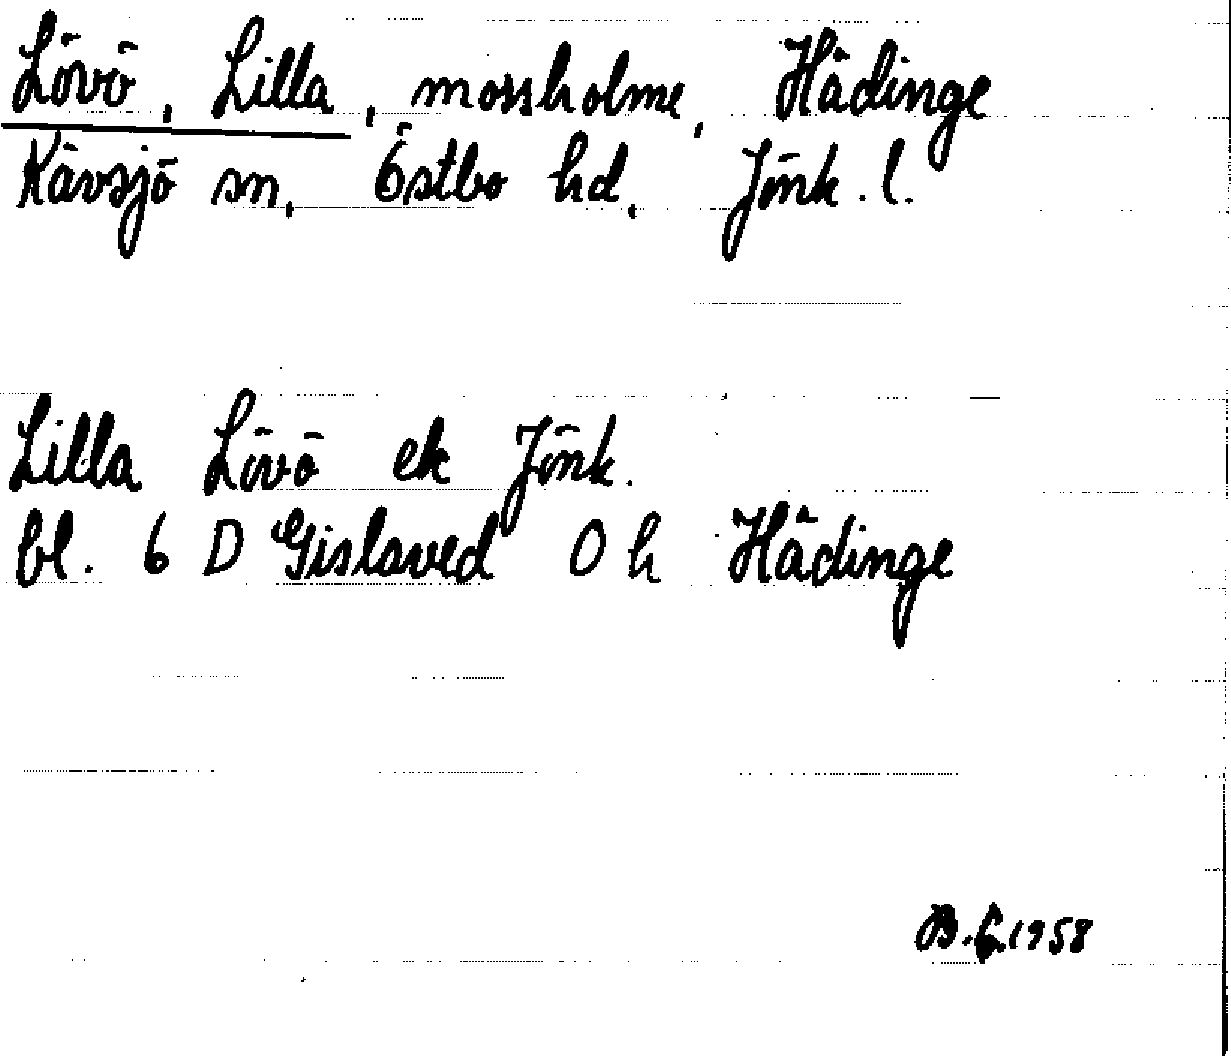 Lövö, Lilla, mossholme, Hådinge
Kävsjö sn, Östbo hd, Jönk. l.
Lilla Lövö ek Jönk.
bl. 6 D Gislaved 0 h Hådinge
B.G.1958